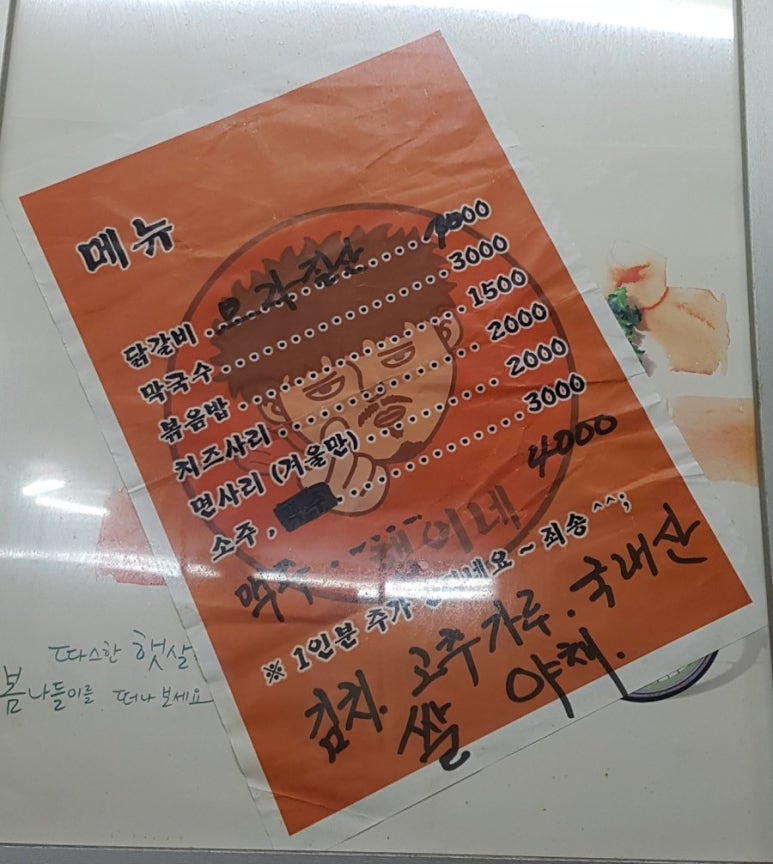 메뉴
닭갈비 ・・・・・・・・・・・・
막국수 ・・・・・・・・・・・・ 3000
볶음밥 ・・・・・・・・・・・・ 1500
치즈사리 ・・・・・・・・・・・・ 2000
면사리 (겨울만) ・・・・・・・・ 2000
소주, ・・・・・・・・・・・・ 3000
맥주. 4000
※ 1인분 추가 ~ 죄송^^;
김치. 고추가루. 국내산
쌀 야채.
따스한 햇살
봄나들이를 떠나보세요